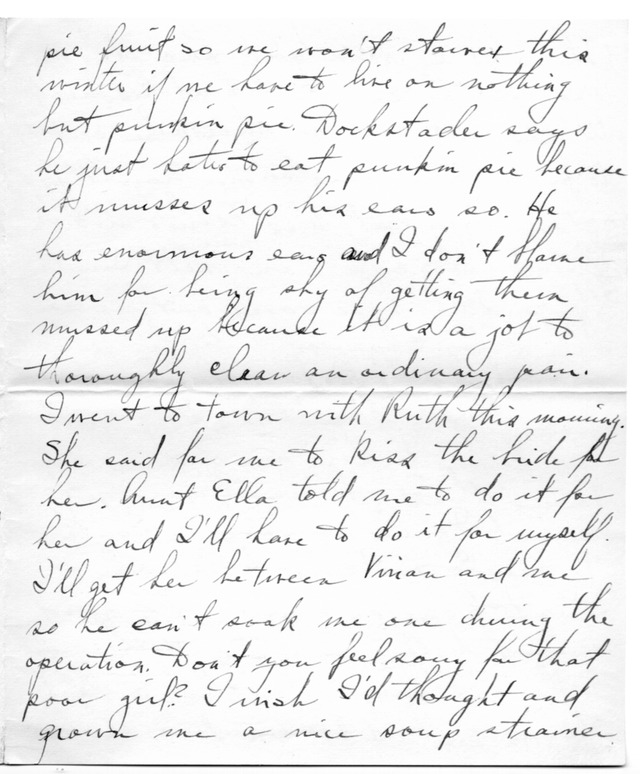 pie fruit so we won't starve this
winter if we have to live on nothing
but punkin pie. Dockstader says
he just hates to eat punkin pie because
it musses up his ears so. He
has enormous ears and I don't blame
him for being shy of getting them
mussed up because it is a job to
thoroughly clean an ordinary pair.
I went to town with Ruth this morning.
She said for me to kiss the bride for
her. Aunt Ella told me to do it for
her and I'll have to do it for myself.
I'll get her between Vivian and me
so he can't soak me one during the
operation. Don't you feel sorry for that
poor girl? I wish I'd thought and
grown me a nice soup strainer